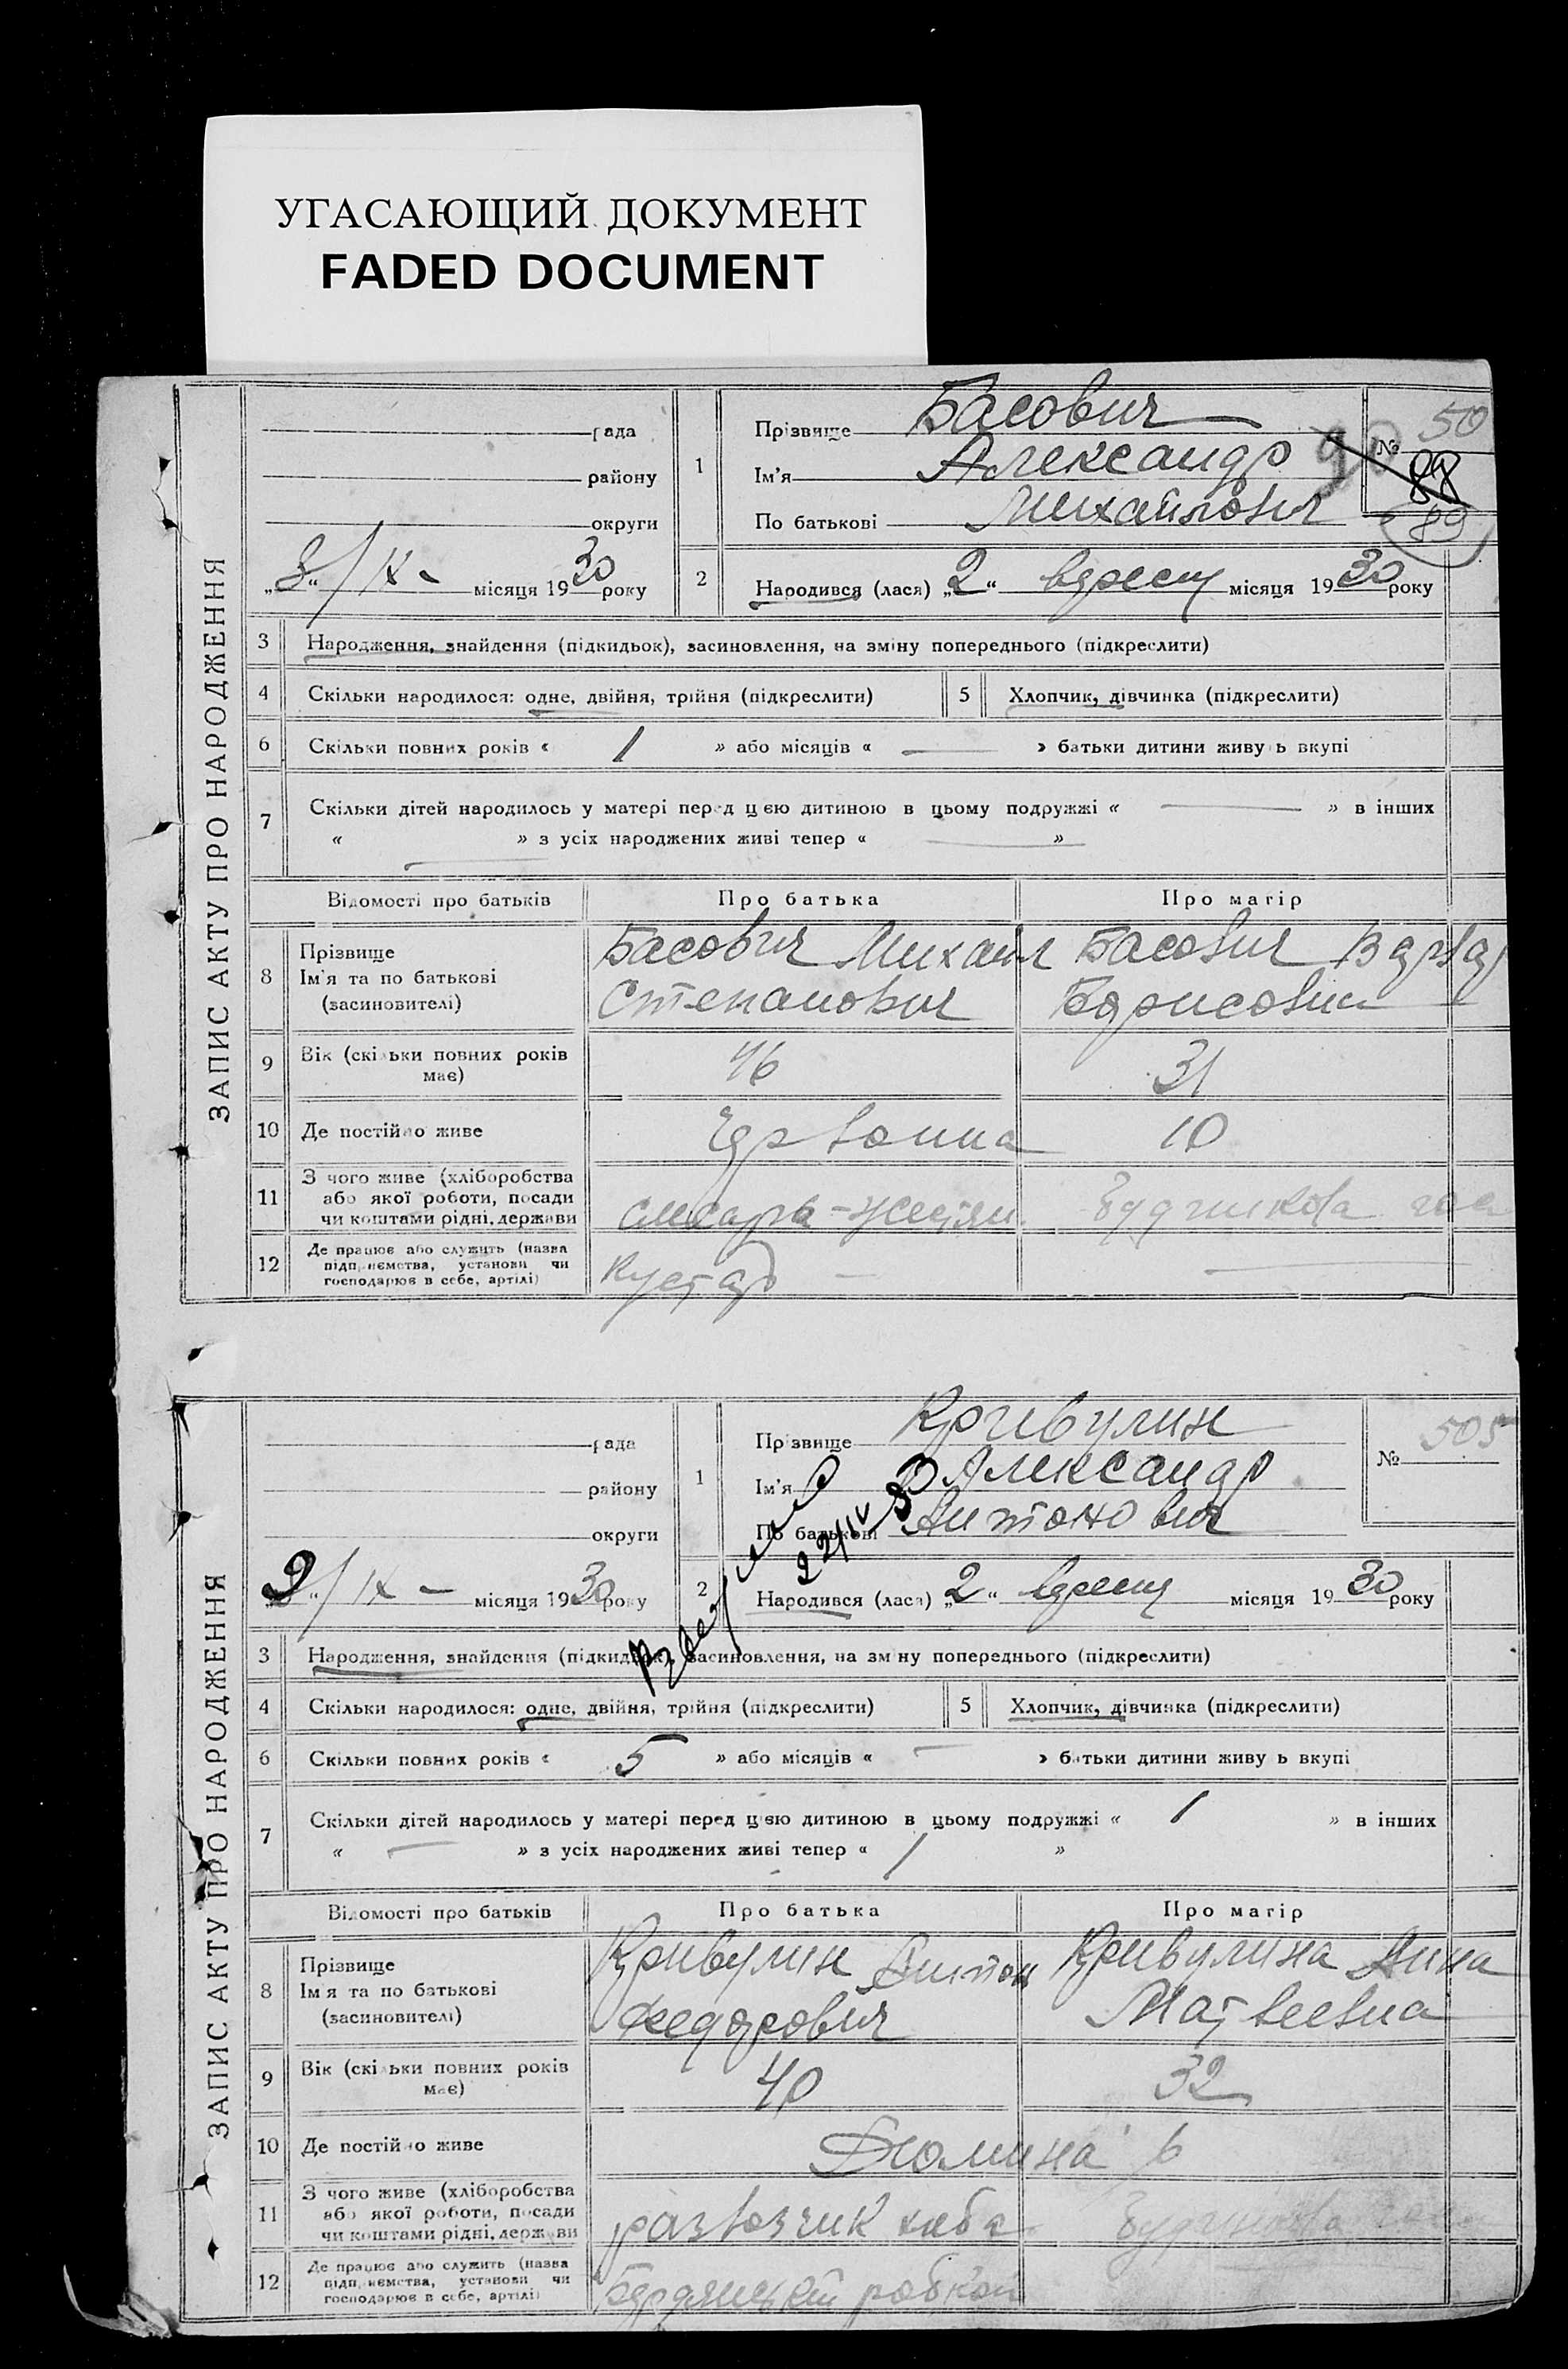 УГАСАЮЩИЙ ДОКУМЕНТ
FADED DOCUMENT
ЗАПИС АКТУ ПРО НАРОДЖЕННЯ
рада
району
округи
„8“ / IX - місяця 1930 року
1
Прізвище Басович
Ім'я Александр
По батькові Михайлович
№ 50
90
88
89
2
Народився (лася) „2“ вересня місяця 1930 року
3 Народження, знайдення (підкидьок), засиновлення, на зміну попереднього (підкреслити)
4 Скільки народилося: одне, двійня, трійня (підкреслити)
5 Хлопчик, дівчинка (підкреслити)
6 Скільки повних років « 1 » або місяців « — » батьки дитини живуть вкупі
7 Скільки дітей народилось у матері перед цією дитиною в цьому подружжі « — » в інших
« — » з усіх народжених живі тепер « — »
Відомості про батьків Про батька Про матір
8 Прізвище
Ім'я та по батькові
(засиновителі)
Басович Михаил
Степанович
Басович
Борисовна
9 Вік (скільки повних років
має)
46
31
10 Де постійно живе
10
11 З чого живе (хліборобства
або якої роботи, посади
чи коштами рідні, держави
слесарь-жестян.
12 Де працює або служить (назва
підприємства, установи чи
господарює в себе, артілі)
Кустар —
ЗАПИС АКТУ ПРО НАРОДЖЕННЯ
рада
району
округи
„9“ / IX - місяця 1930 року
1
Прізвище Кривулин
Ім'я Александр
По батькові Антонович
№ 505
2
Народився (лася) „2“ вересня місяця 1930 року
3 Народження, знайдення (підкидьок), засиновлення, на зміну попереднього (підкреслити)
4 Скільки народилося: одне, двійня, трійня (підкреслити)
5 Хлопчик, дівчинка (підкреслити)
6 Скільки повних років « 5 » або місяців « — » батьки дитини живуть вкупі
7 Скільки дітей народилось у матері перед цією дитиною в цьому подружжі « 1 » в інших
« — » з усіх народжених живі тепер « 1 »
Відомості про батьків Про батька Про матір
8 Прізвище
Ім'я та по батькові
(засиновителі)
Кривулин Антон
Федорович
Кривулина Анна
Матвеевна
9 Вік (скільки повних років
має)
40
32
10 Де постійно живе
Дюмина 6
11 З чого живе (хліборобства
або якої роботи, посади
чи коштами рідні, держави
развозчик хлеба
12 Де працює або служить (назва
підприємства, установи чи
господарює в себе, артілі)